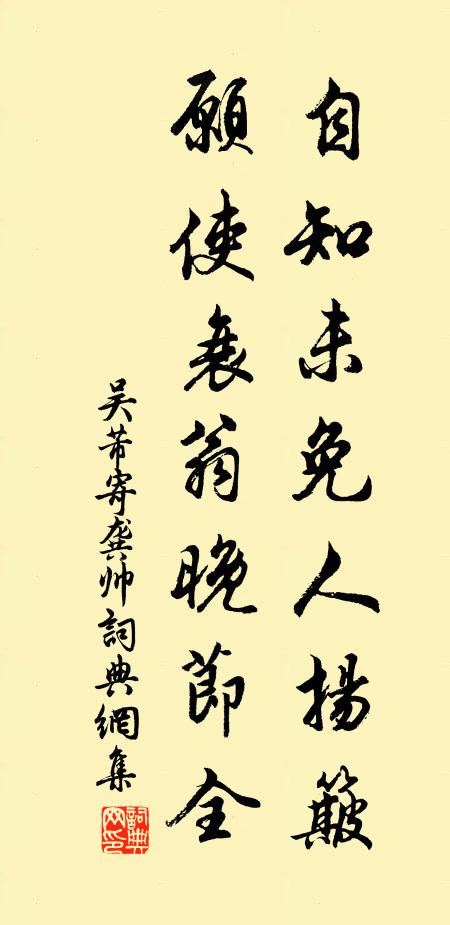 自知未免人揚簸
願使衰翁晚節全
吴芾寄龔帅詞典網集
詞典网印